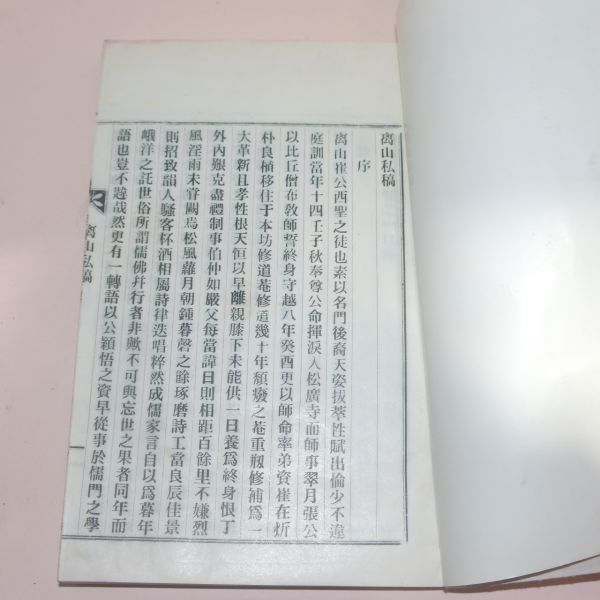 离山私稿
序
离山崔公西聖之徒也素以名門後裔天姿拔萃性賦出倫少不違
庭訓當年十四壬子秋奉尊公命揮淚入松廣寺而師事翠月張公
以比丘僧布教師誓終身守越八年癸酉更以師命率弟資崔在炘
朴良植移住于本坊修道菴修道幾十年頹癈之菴重刱修補爲一
大革新且孝性根天恒以早離親膝下未能供一日養爲終身恨丁
外內艱克盡禮制事伯仲如嚴父每當諱日則相距百餘里不嫌烈
風淫雨未甞闕焉松風蘿月朝鍾暮磬之餘琢磨詩工當良辰佳景
則招致韻人騷客杯酒相屬詩律迭唱粹然成儒家言自以爲暮年
峨洋之託世俗所謂儒佛幷行者非歟不可與忘世之果者同年而
語也豈不韙哉然更有一轉語以公穎悟之資早從事於儒門之學
离山私稿